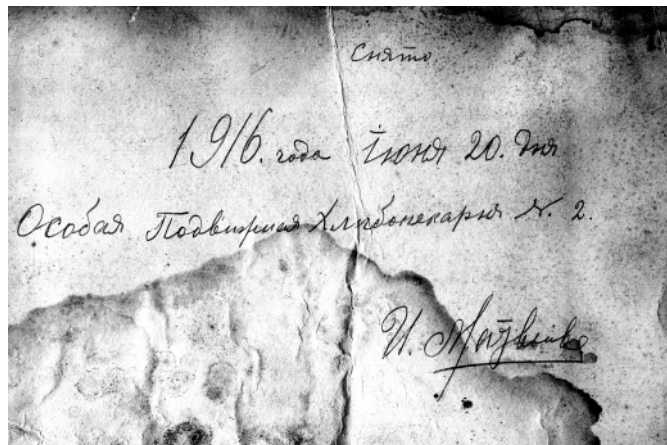 Снято
1916. года Іюня 20. дня
Особая Подвижная Хлѣбопекарня №. 2.
И.